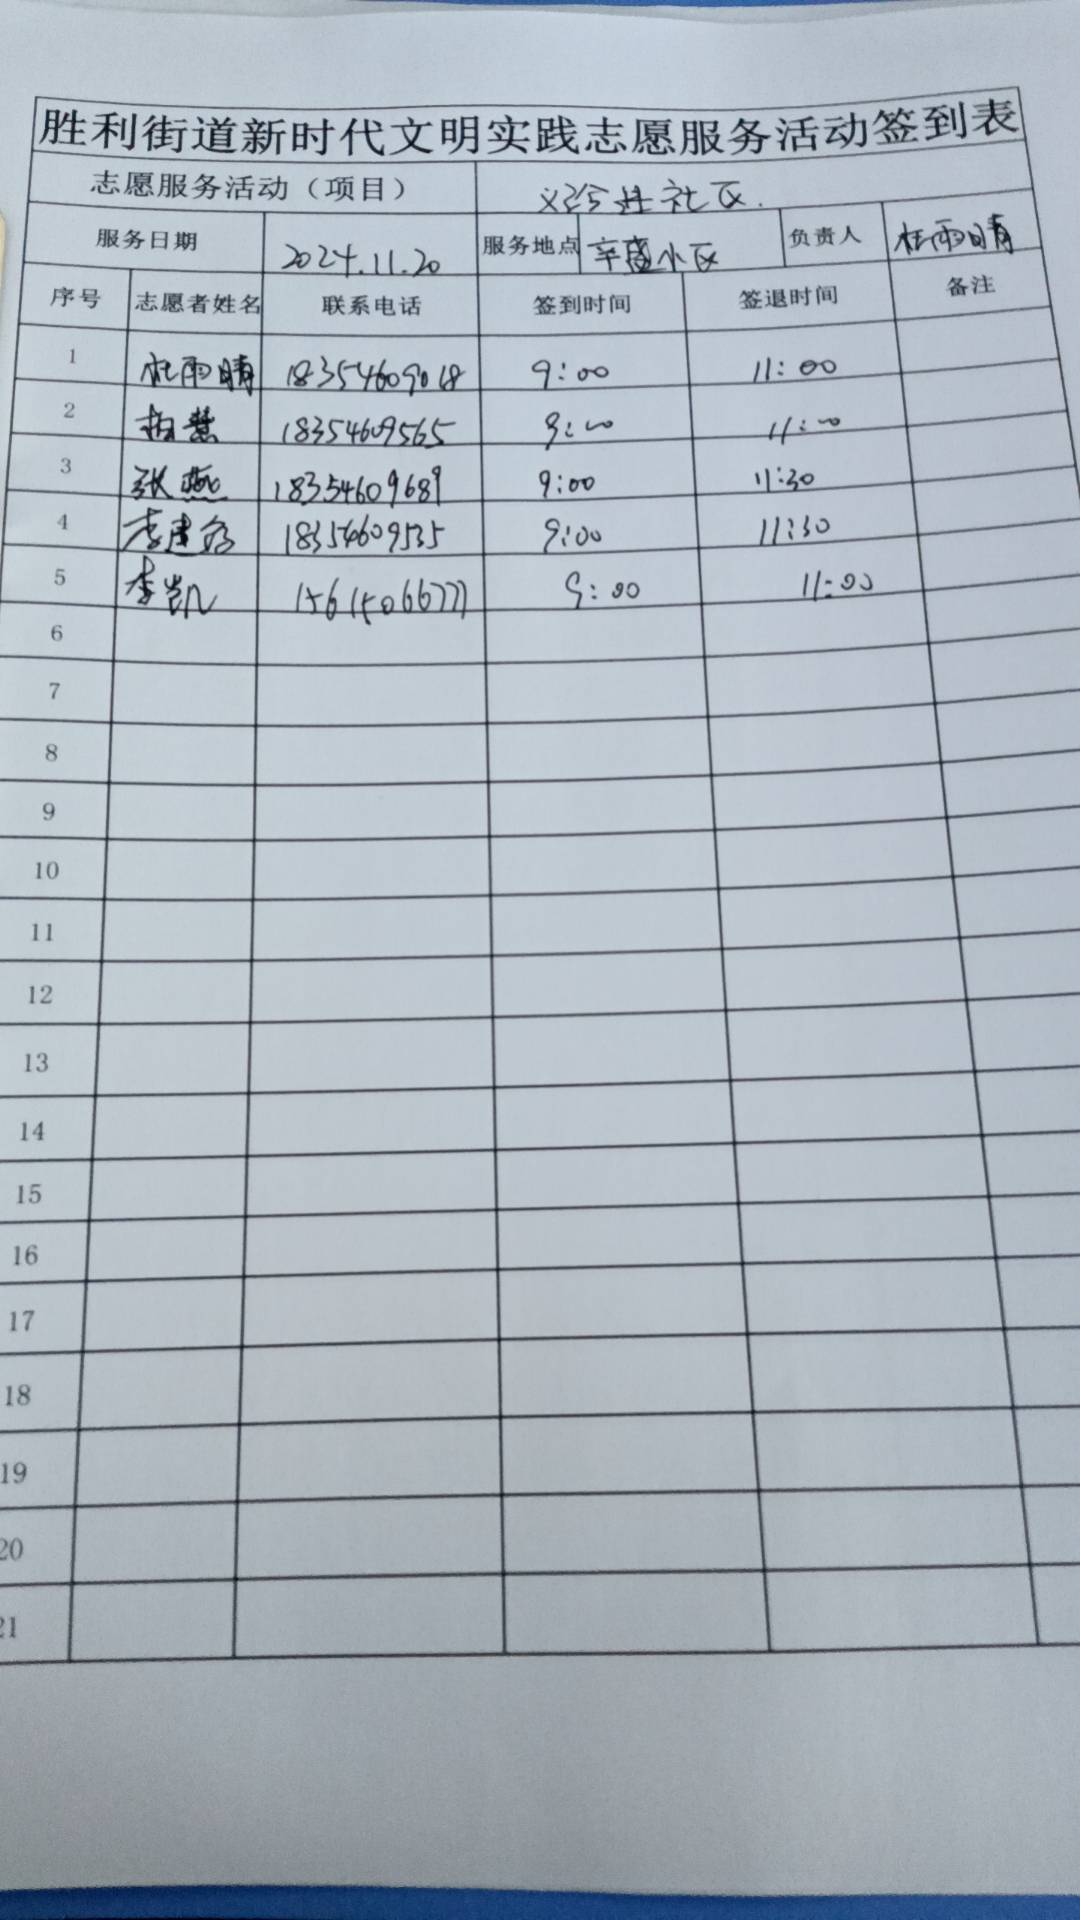 胜利街道新时代文明实践志愿服务活动签到表
志愿服务活动（项目） 义诊进社区.
服务日期 2024.11.20 服务地点 辛盛小区 负责人 杜雨晴
序号 志愿者姓名 联系电话 签到时间 签退时间 备注
1 杜雨晴 18354609018 9:00 11:00
2 18354609565 9:00 11:00
3 张燕 18354609689 9:00 11:30
4 18354609535 9:00 11:30
5 李凯 15615066777 9:00 11:00
6
7
8
9
10
11
12
13
14
15
16
17
18
19
20
21